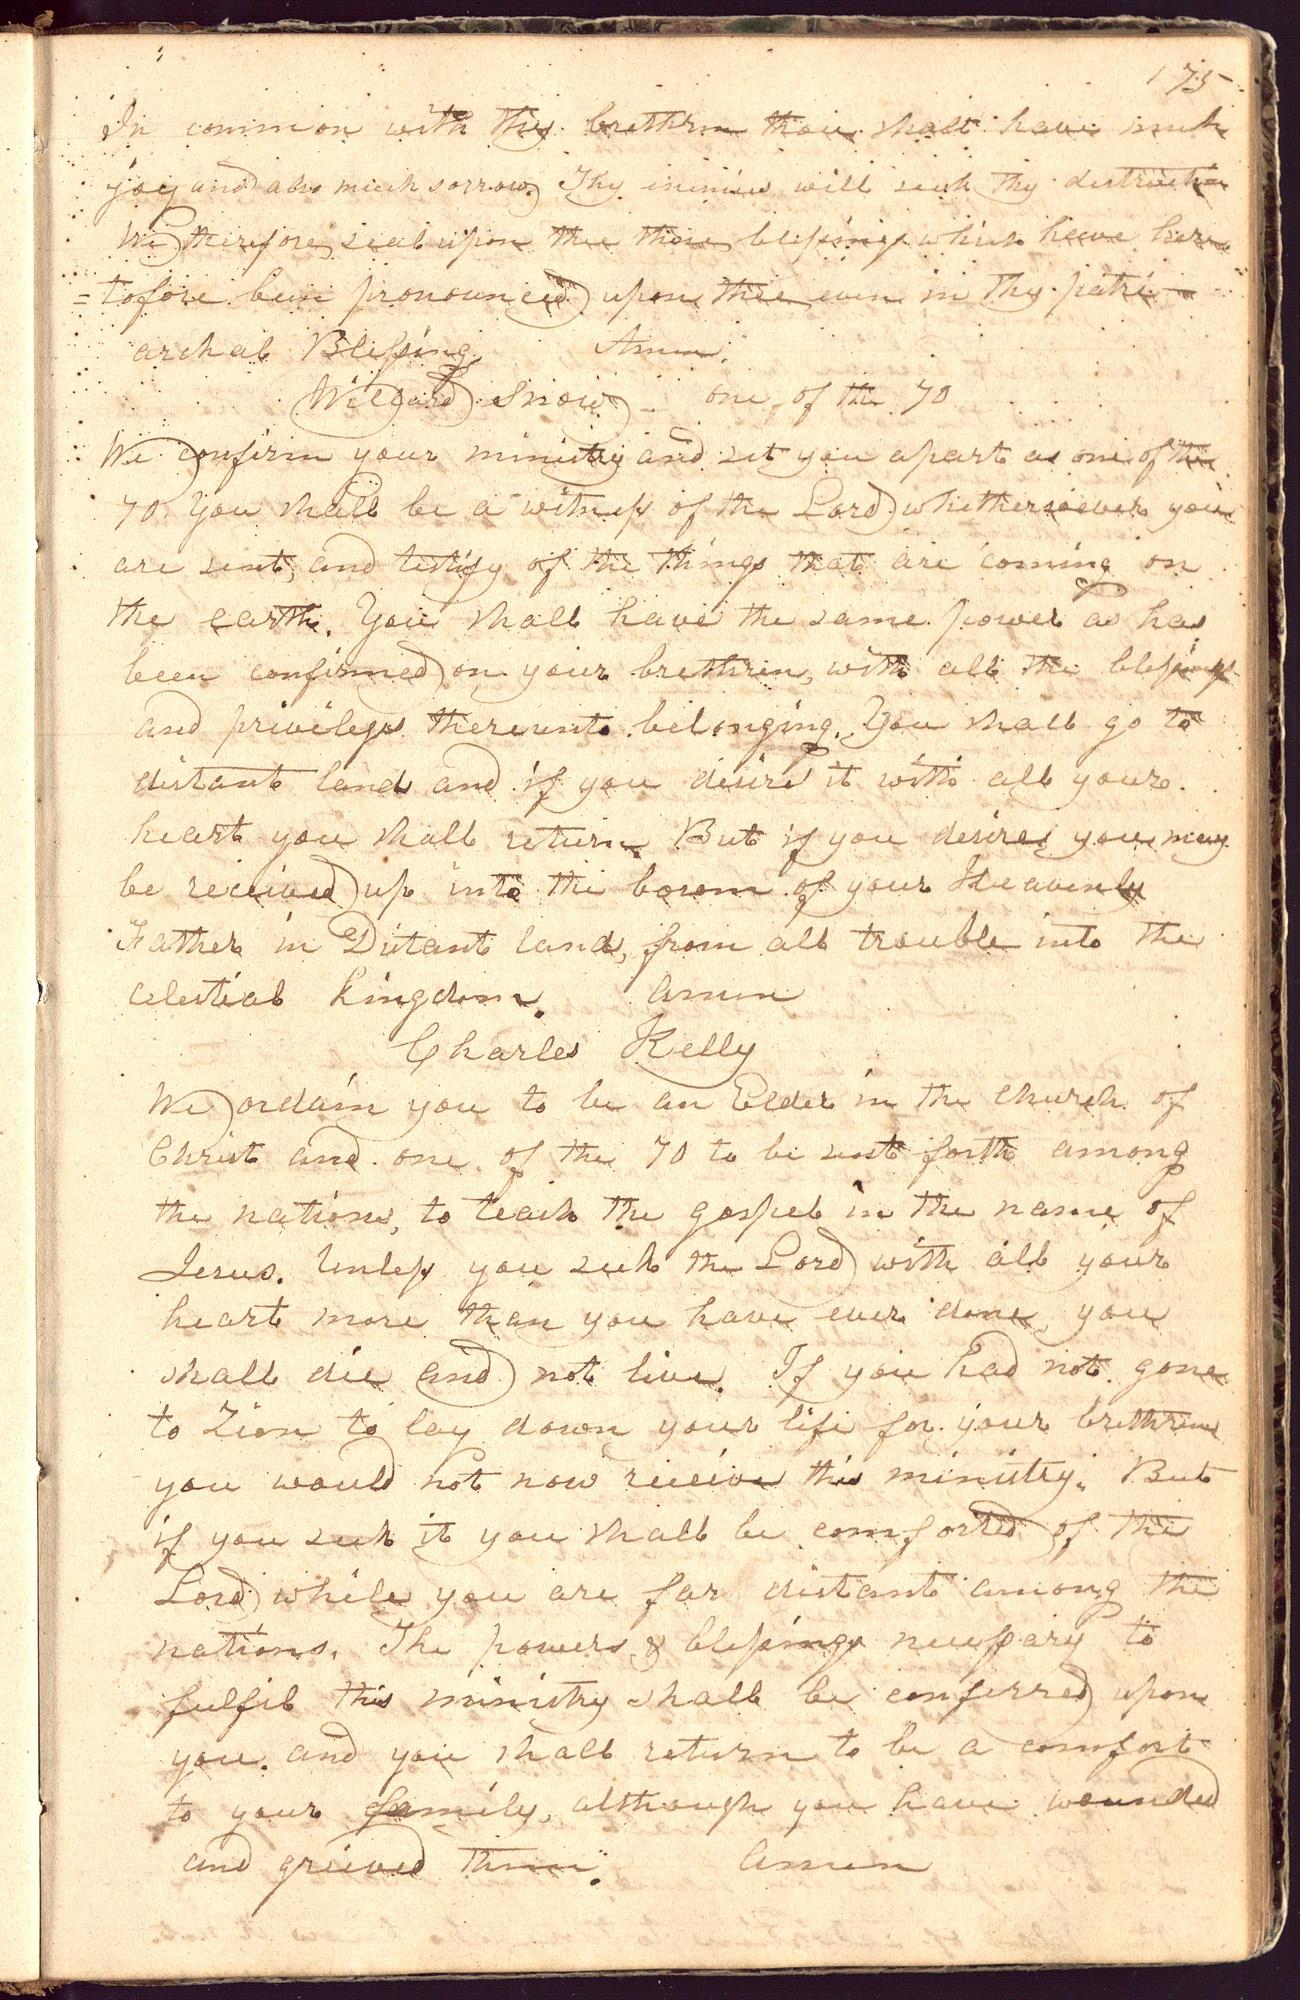 175
In common with thy brethren thou shalt have much
joy and also much sorrow. Thy enimies will seek thy distruction
We therefore, seal upon thee those blessings which have here
=tofore been pronounced upon thee even in thy patri
archal Blessing. Amen.
Willard Snow one of the 70
We confirm your ministry and set you apart as one of the
70. You shall be a witness of the Lord whithersoever you
are sent, and testify of the things that are coming on
the earth. You shall have the same power as has
been confirmed on your brethren, with all the blessings
and privileges thereunto belonging. You shall go to
distant land and if you desire it with all your
heart you shall return. But if you desire, you may
be received up into the bosom of your Heavenly
Father in Distant land, from all trouble into the
celestial kingdom. Amen
Charles Kelly
We ordain you to be an Elder in the church of
Christ and one of the 70 to be sent forth among
the nations, to teach the gospel in the name of
Jesus. Unless you seek the Lord with all your
heart more than you have ever done, you
shall die and not live. If you had not gone
to Zion to lay down your life for your brethren
you would not now receive this ministry. But
if you seek it you shall be comforted of the
Lord while you are far distant among the
nations. The powers & blessings necessary to
fulfil this ministry shall be conferred upon
you. and you shall return to be a comfort
to your family, although you have wounded
and grieved them. Amen